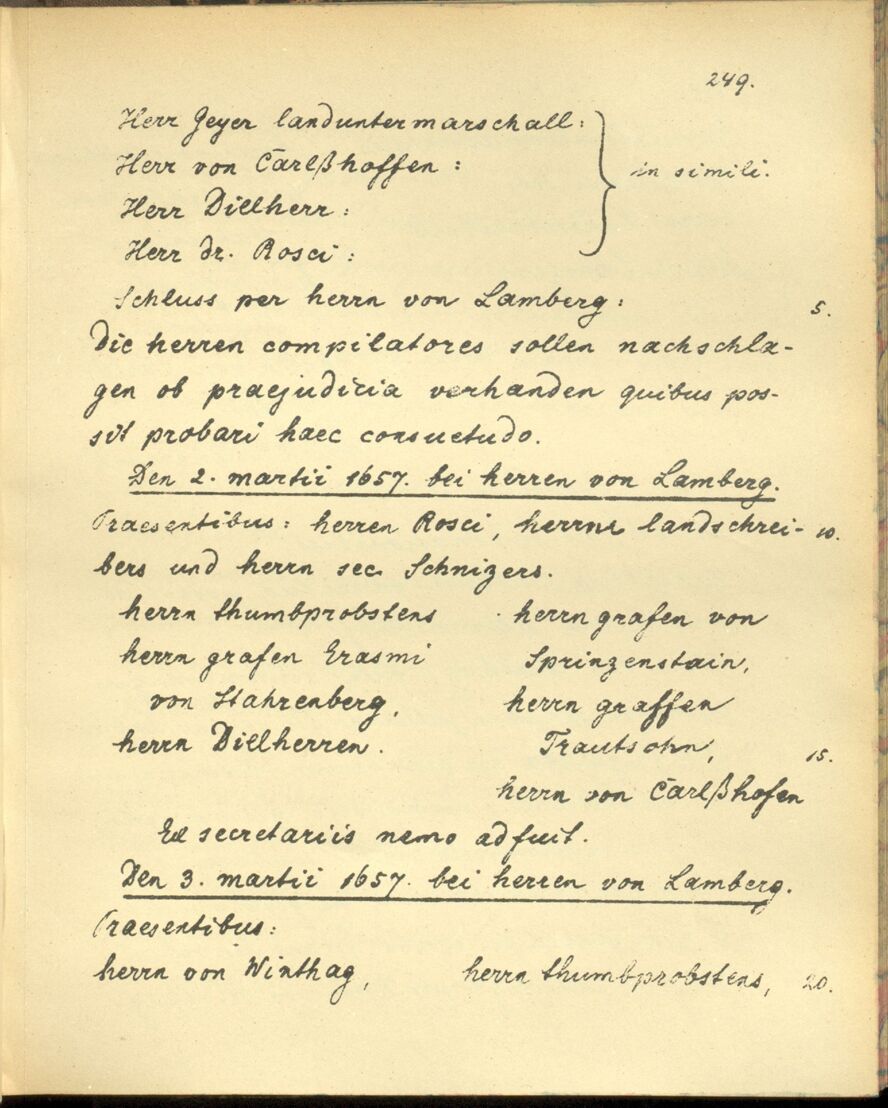 249.
Herr Geyer landuntermarschall:
Herr von Carlßhoffen: } in simili.
Herr Dillherr:
Herr dr. Rosci:
Schluss per herrn von Lamberg: 5.
Die herren compilatores sollen nachschla-
gen ob praejudicia verhanden quibus pos-
sit probari haec consuetudo.
Den 2. martii 1657. bei herren von Lamberg.
Praesentibus: herren Rosci, herrne landschrei- 10.
bers und herrn sec. Schnizers.
herrn thumbprobstens herrn grafen von
herrn grafen Erasmi Sprinzenstain,
von Stahrenberg, herrn graffen
herrn Dillherren. Trautsohn, 15.
herrn von Carlßhofen
Ex secretariis nemo adfuit.
Den 3. martii 1657. bei herren von Lamberg.
Praesentibus:
herrn von Winthag, herrn thumbprobstens, 20.